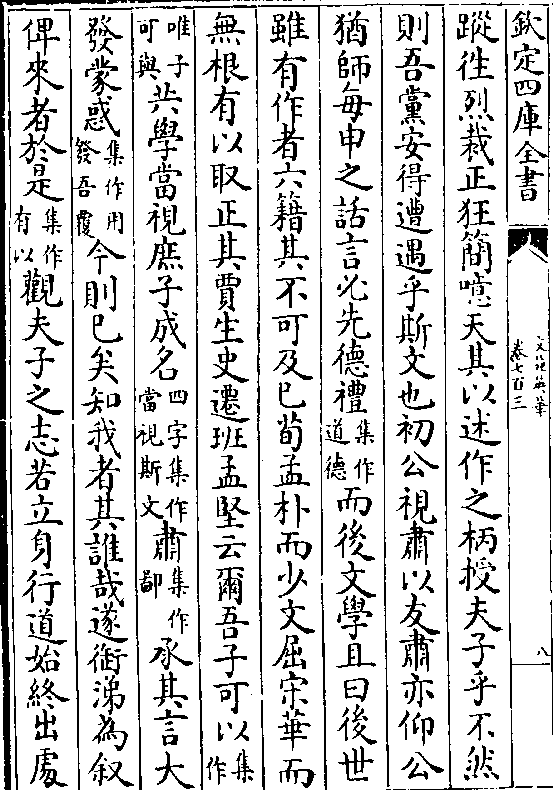 欽定四庫全書
文苑英華
卷七百三
八
蹤徃烈裁正狂簡噫天其以述作之柄授夫子乎不然
則吾黨安得遭遇乎斯文也初公視肅以友肅亦仰公
猶師每申之話言必先德禮集作道德而後文學且曰後世
雖有作者六籍其不可及已荀孟朴而少文屈宋華而
無根有以取正其賈生史遷班孟堅云爾吾子可以集作
唯子可與共學當視庶子成名四字集作當視斯文肅集作鄙承其言大
發蒙惑集作用發吾覆今則已矣知我者其誰哉遂銜涕為叙
俾來者於是集作有以觀夫子之志若立身行道始終出處